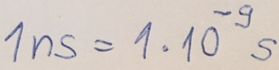 1ns = 1 · 10⁻⁹ s